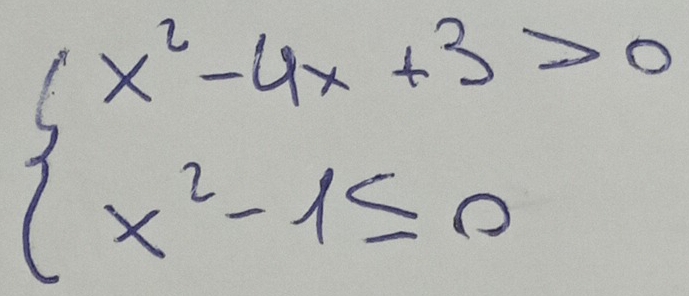 x² - 4x + 3 > 0
x² - 1 ≤ 0